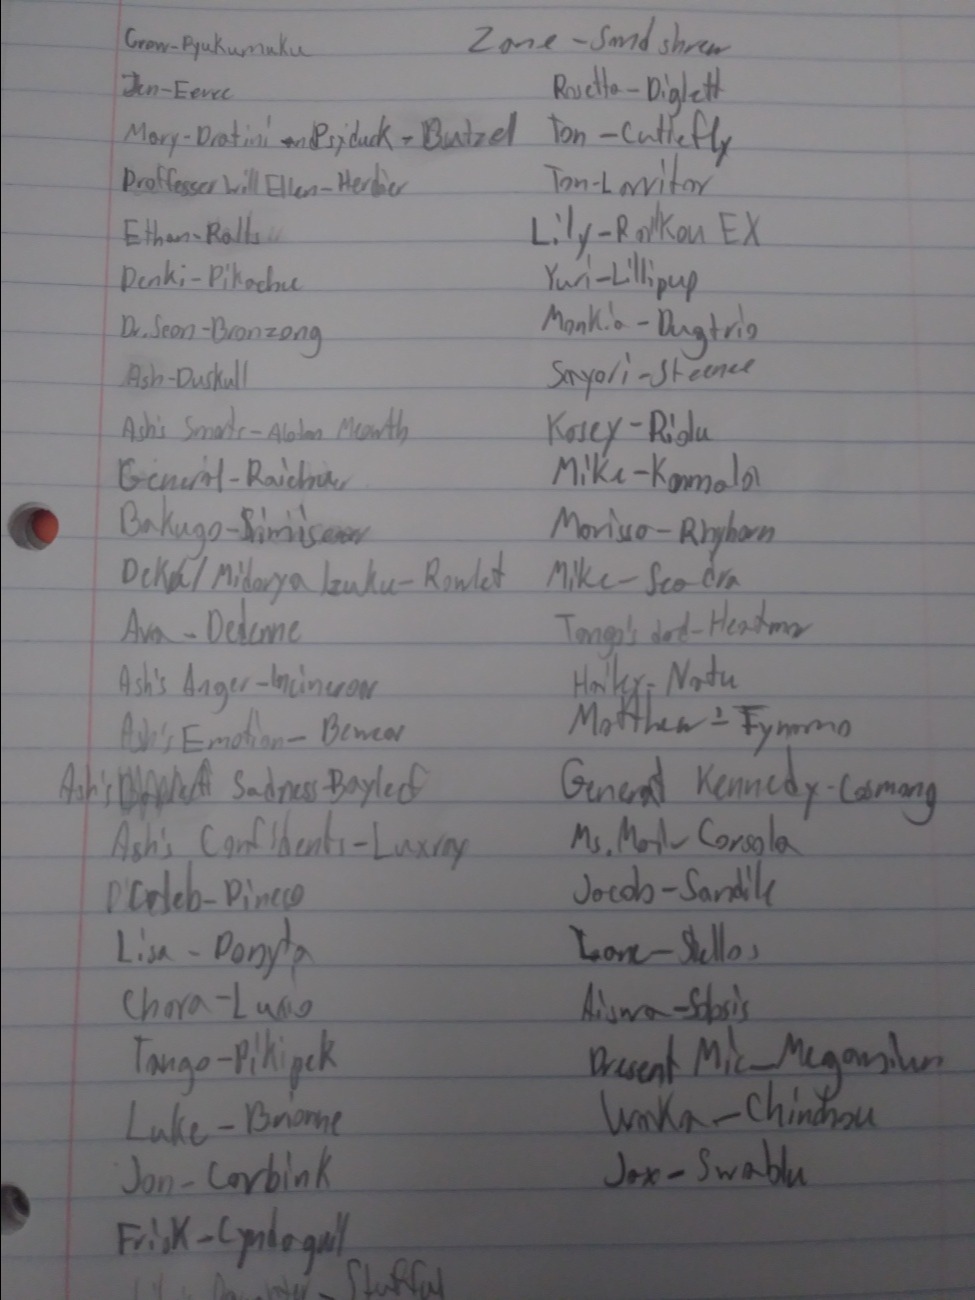 Grow-Pyukumuku
Jen-Eevee
Mary-Dratini and Psyduck - Butzel
Proffesser Will Ellen-Herdier
Ethan-Ralts
Denki-Pikachu
Dr. Sean-Bronzong
Ash-Duskull
Ash's Smarts-Alolan Meowth
General-Raichu
Bakugo-Simisear
Deku/Midorya Izuku-Rowlet
Ava-Dedenne
Ash's Anger-Incineroar
Ash's Emotion-Bewear
Ash's Sadness-Bayleef
Ash's Confidents-Luxray
Caleb-Pineco
Lisa-Ponyta
Chora-
Tango-Pikipek
Luke-Brionne
Jon-Carbink
Frisk-Cyndaquil
- Stufful
Zane-Sandshrew
Rosetta-Diglett
Tan-Cutiefly
Tan-Larvitar
Lily-Raikou EX
Yuri-Lillipup
Monika-Dugtrio
Sayori-Steenee
Kasey-Riolu
Mike-Kommala
-Rhyhorn
Mike-Seadra
Tango's dad-Heatmor
-Natu
Matthew-Tynamo
General Kennedy-Cosmong
Ms. -Corsola
Jacob-Sandile
Present Mic-
-Chinchou
Jax-Swablu